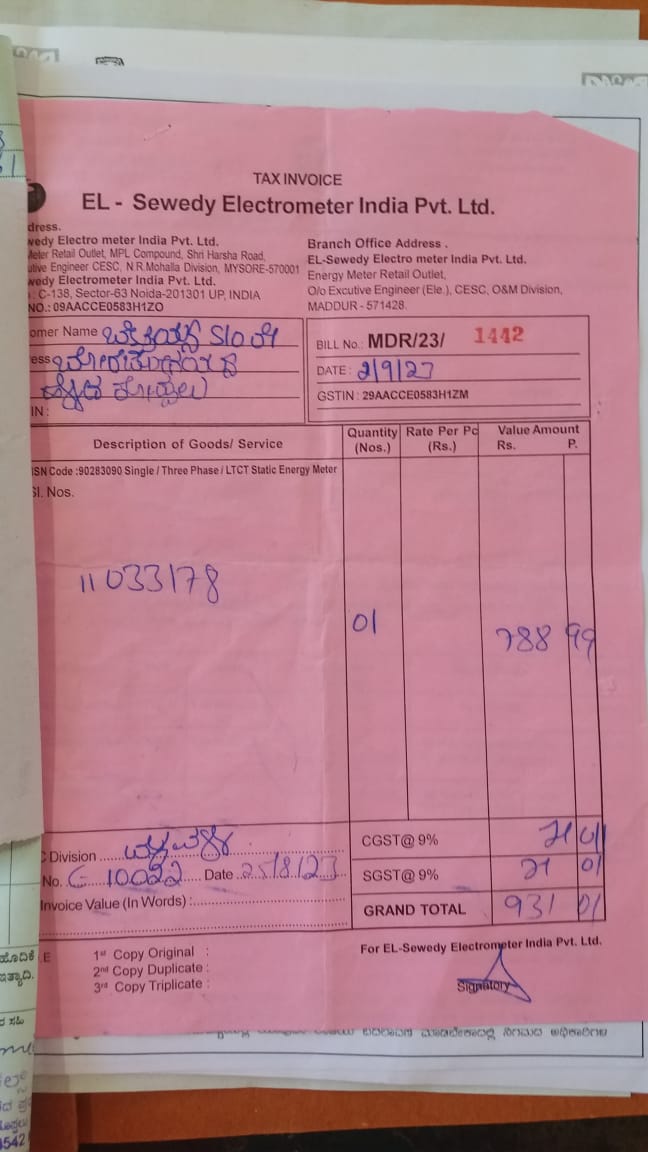 TAX INVOICE
EL - Sewedy Electrometer India Pvt. Ltd.
dress.
wedy Electro meter India Pvt. Ltd.
Meter Retail Outlet, MPL Compound, Shri Harsha Road,
utive Engineer CESC, N.R.Mohalla Division, MYSORE-570001
wedy Electrometer India Pvt. Ltd.
C-138, Sector-63 Noida-201301 UP, INDIA
NO.: 09AACCE0583H1ZO
Branch Office Address .
EL-Sewedy Electro meter India Pvt. Ltd.
Energy Meter Retail Outlet,
O/o Excutive Engineer (Ele.), CESC, O&M Division,
MADDUR - 571428.
omer Name S/o
ess
IN:
BILL No.: MDR/23/ 1442
DATE : 2/9/23
GSTIN : 29AACCE0583H1ZM
Description of Goods/ Service
Quantity (Nos.)
Rate Per Pc (Rs.)
Value Amount
Rs. P.
ISN Code :90283090 Single / Three Phase / LTCT Static Energy Meter
Sl. Nos.
11033178
01
788 99
CGST@ 9% 71 01
SGST@ 9% 71 01
GRAND TOTAL 931 01
C Division
No. 10022 Date 25/8/23
Invoice Value (In Words) :
E 1st Copy Original :
2nd Copy Duplicate :
3rd Copy Triplicate :
For EL-Sewedy Electrometer India Pvt. Ltd.
Signatory